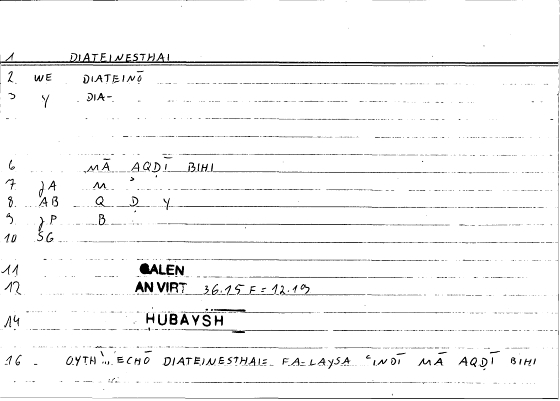 1 DIATEINESTHAI
2 WE DIATEINŌ
3 Y DIA-
6 MĀ AQḌĪ BIHI
7 JA M
8 AB Q Ḍ Y
9 JP B
10 SG
11 GALEN
12 AN VIRT 36.15 F = 12.19
14 HUBAYSH
16 ECHŌ DIATEINESTHAI= FA-LAYSA ʿINDĪ MĀ AQḌĪ BIHI